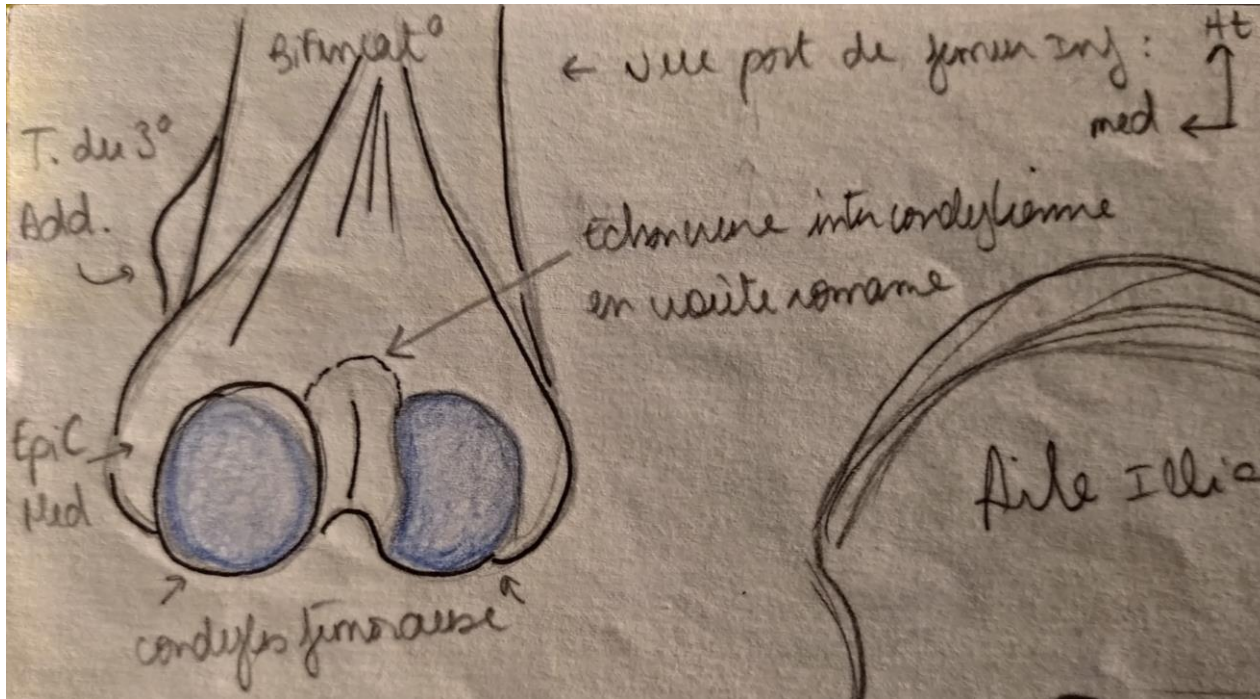 Bifurcat°
← vue post de femur Inf :
Ht
med
T. du 3°
Add.
Echancrure intercondylienne
en voûte romane
EpiC
Med
Aile Illia
condyles fémoraux